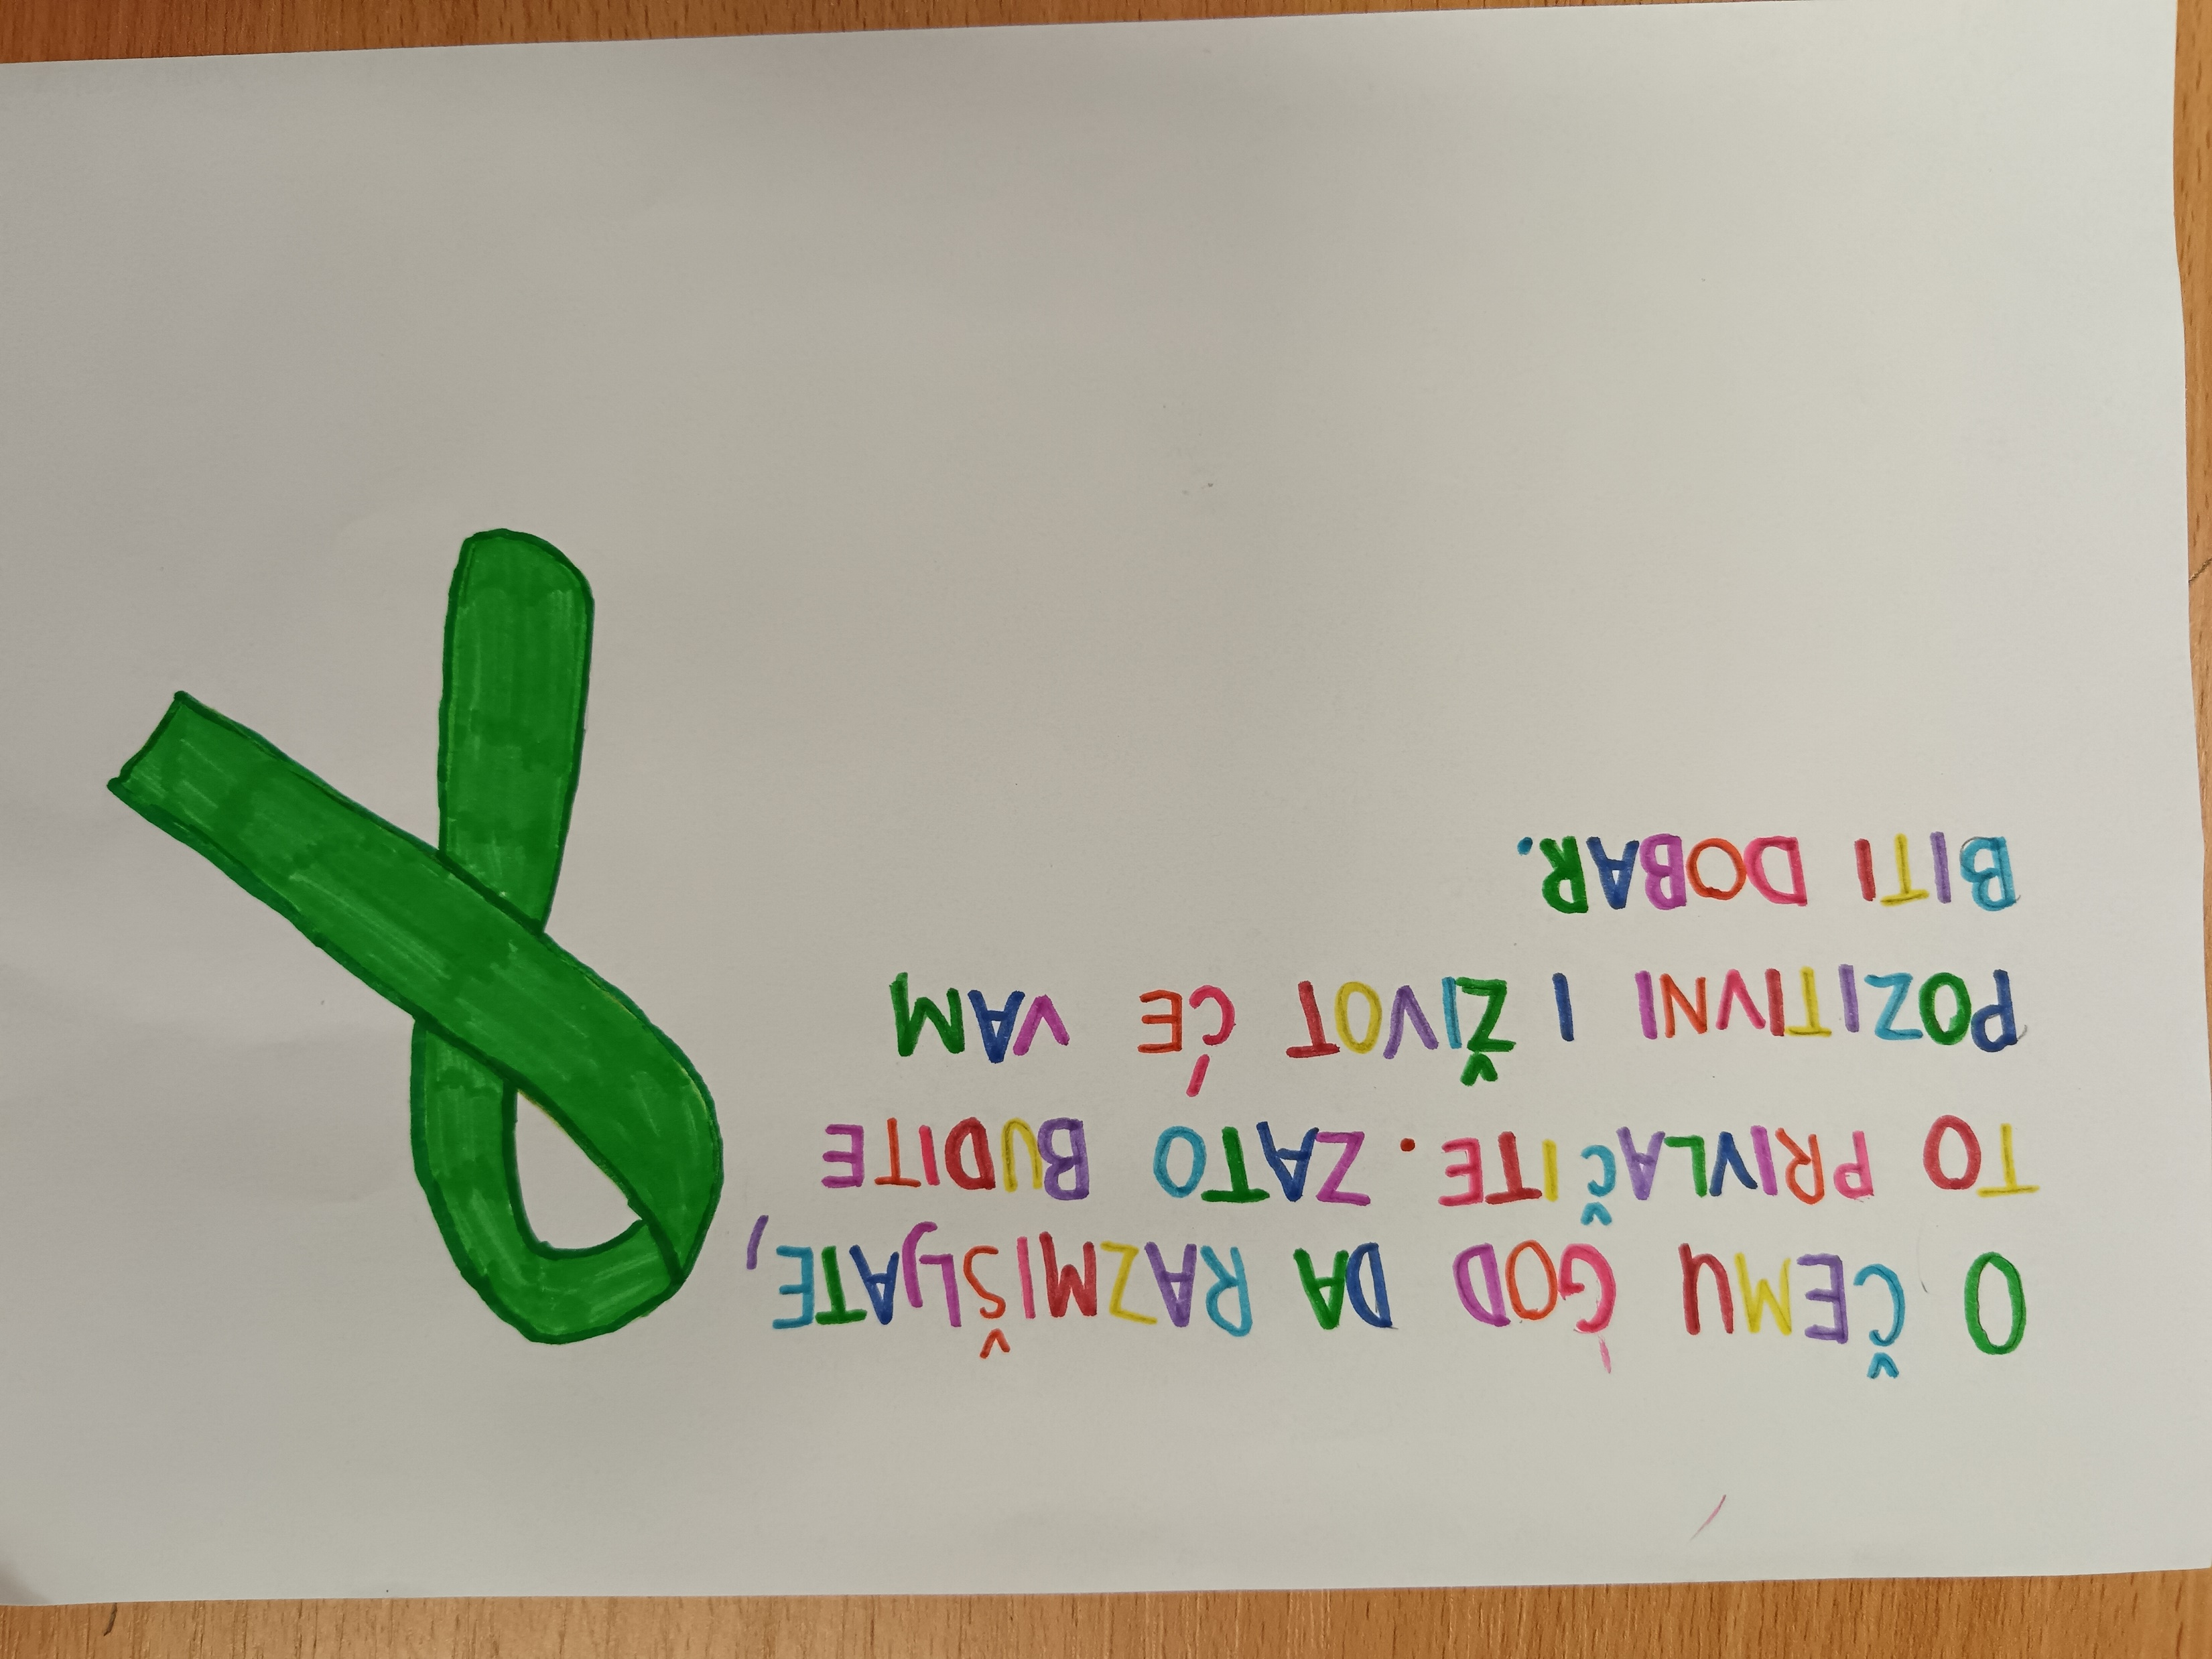 O ČEMU GOD DA RAZMIŠLJATE,
TO PRIVLAČITE. ZATO BUDITE
POZITIVNI I ŽIVOT ĆE VAM
BITI DOBAR.